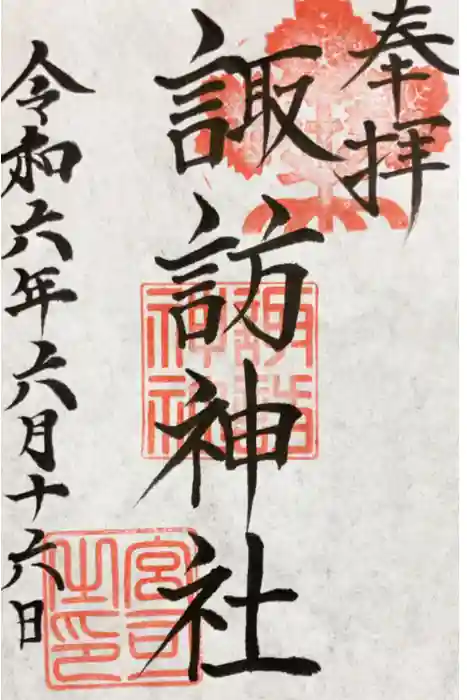 奉拝
諏訪神社
令和六年六月十六日
諏訪神社
宮司之印